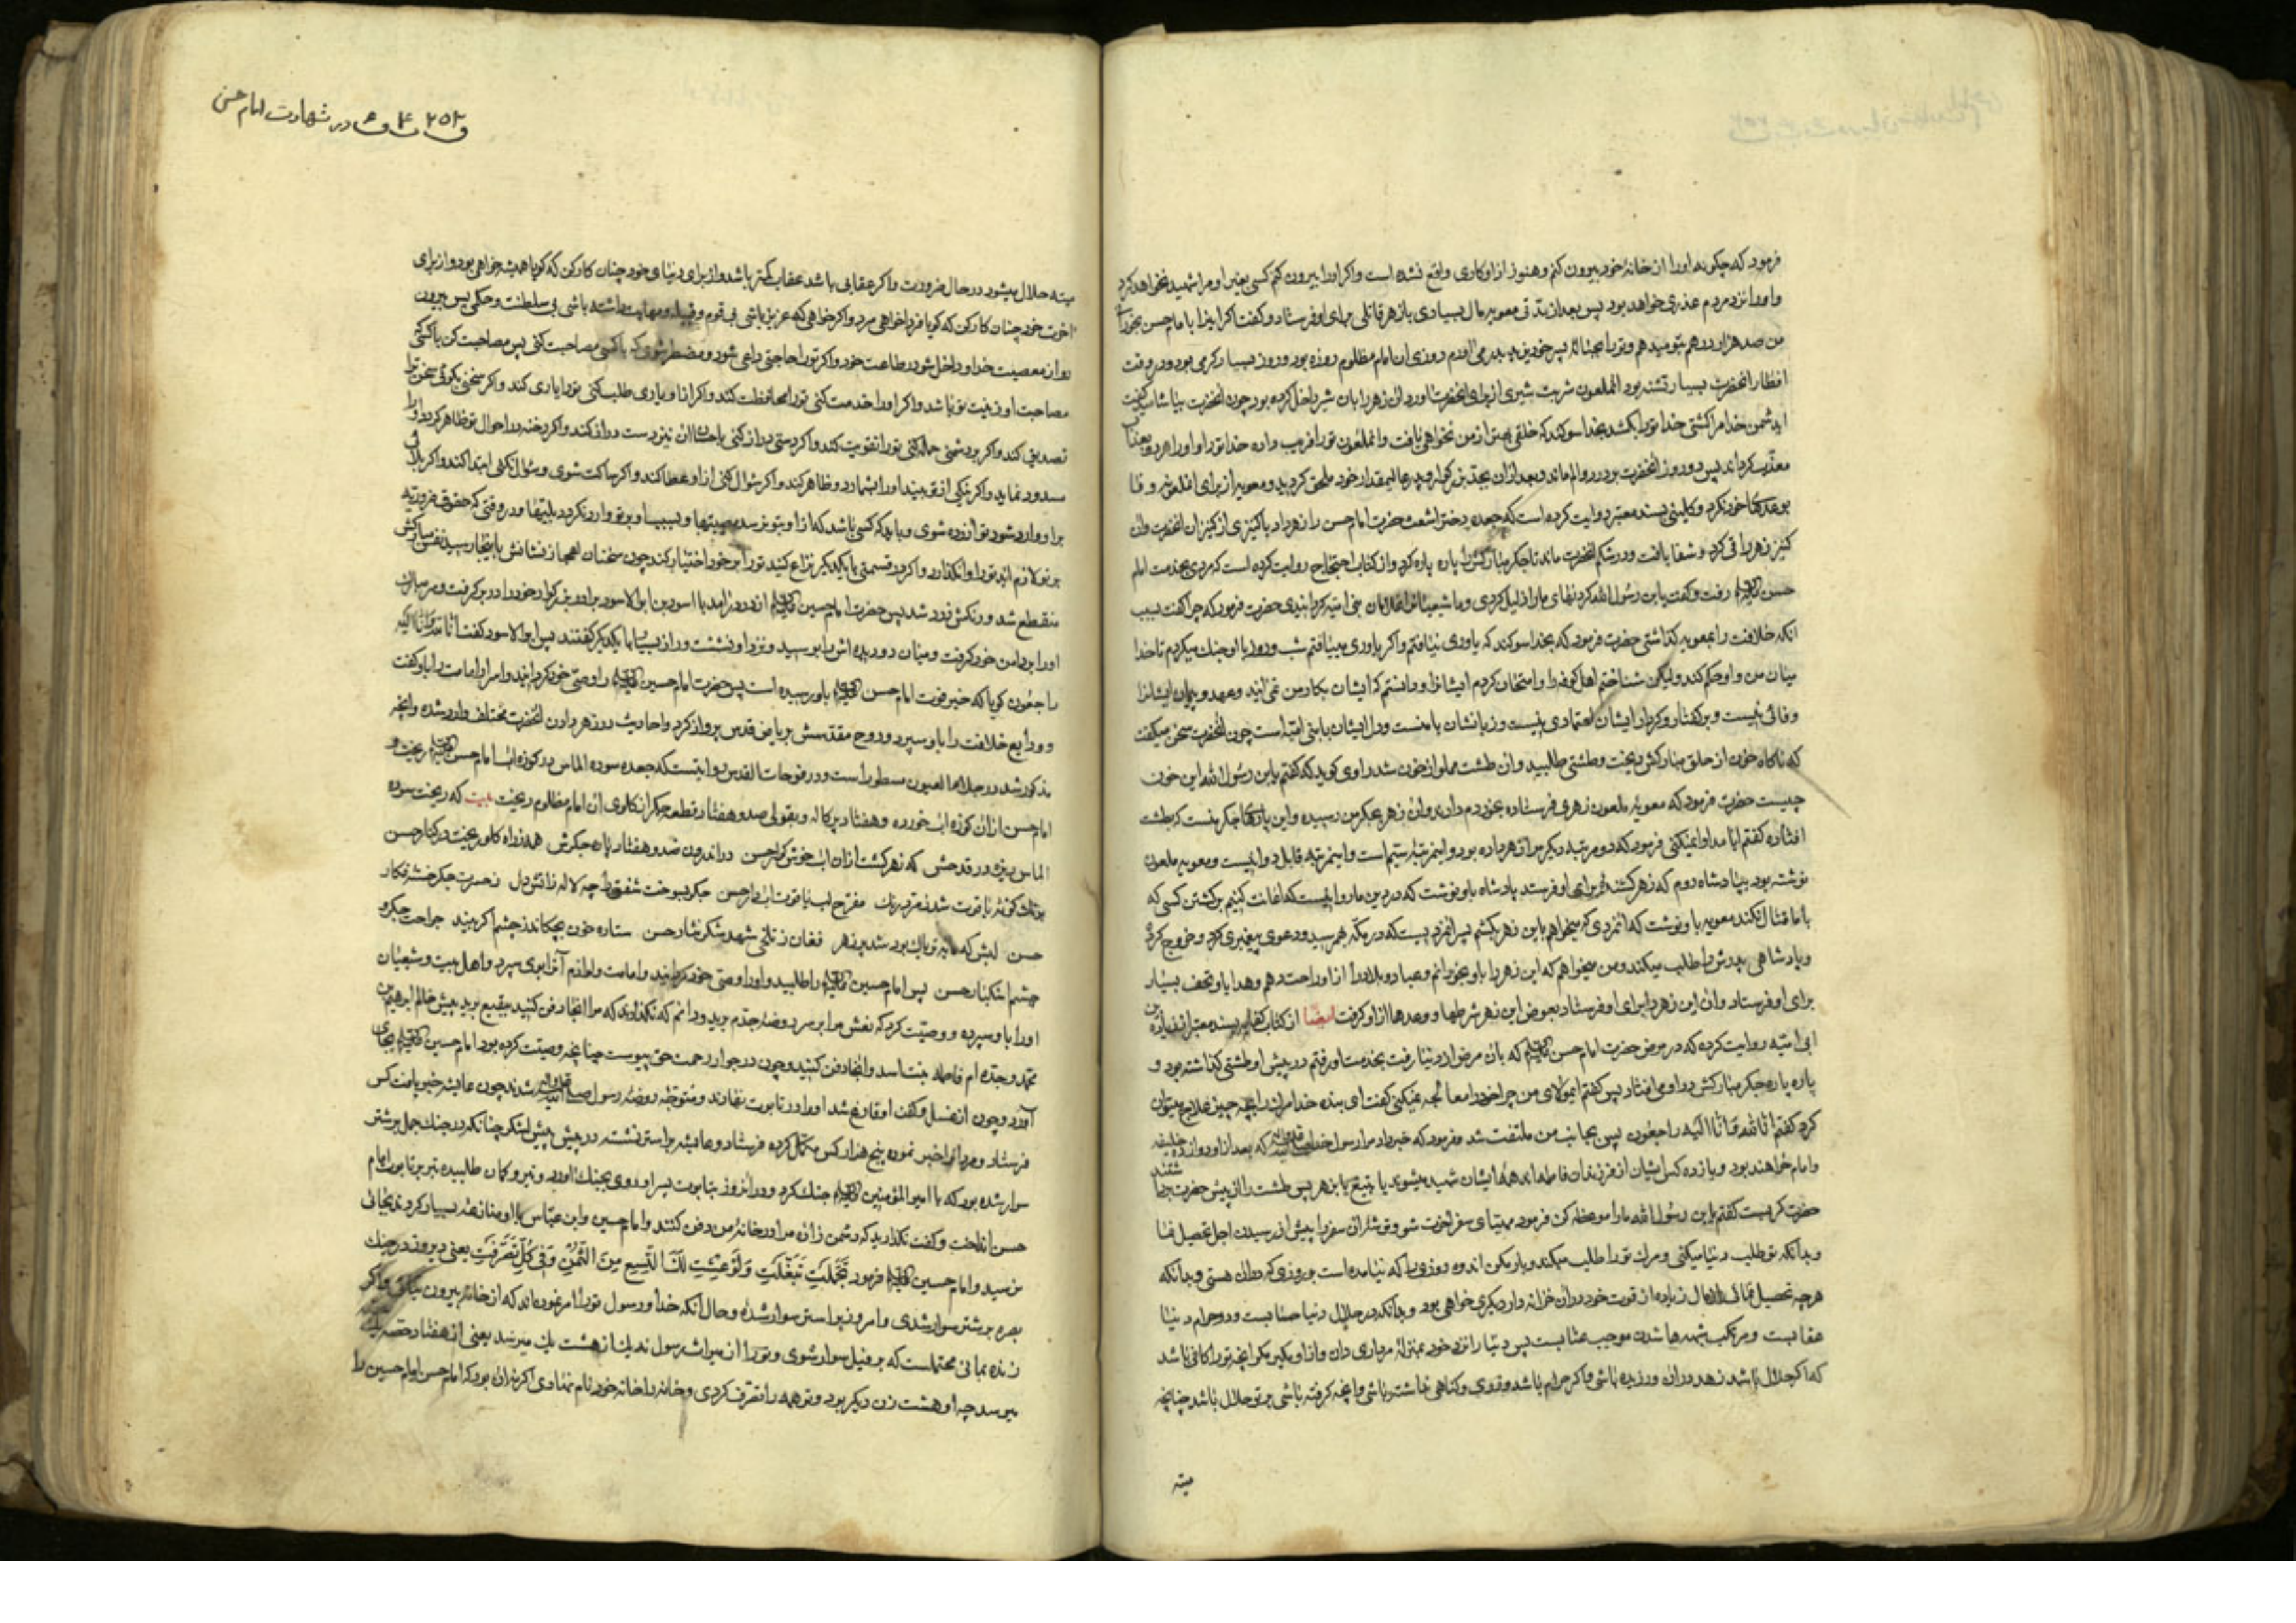 فرمود که چکونه اورا از خانهٔ خود بیرون کنم و هنوز از او کاری واقع نشده است و اکر اورا بیرون کنم کسی بغیر او مرا شهید نخواهد کرد
و اورا نزد مردم عذری خواهد بود پس بعد از مدتی معویه مال بسیاری با زهر قاتلی برای او فرستاد و کفت اکر اینرا بامام حسن بخورانی
من صد هزار درهم بتو میدهم و ترا بحبالهٔ پسر خود یزید در می‌آورم روزی ان امام مظلوم روزه بود و روز بسیار کرمی بود در وقت
افطار انحضرت بسیار تشنه بود انملعون شربت شیری از برای انحضرت اورد و ان زهر را بان شیر داخل کرده بود چون انحضرت بیاشامید کفت
ایدشمن خدا مرا کشتی خدا تورا بکشد بخدا سوکند که خلفی بهتر از من نخواهی یافت و انملعون تورا فریب داده خدا تورا و اورا هر دو بعذاب
معذب کرداند پس دو روز انحضرت بود در درد و الم ماند و بعد ازان بجد بزرکوار و پدر عالیمقدار خود ملحق کردید و معویه از برای انملعونه وفا
بوعدهای خود نکرد و کلینی بسند معتبر روایت کرده است که جعده دختر اشعث حضرت امام حسن را زهر داد با کنیزی از کنیزان انحضرت و ان
کنیز زهر را قی کرد و شفا یافت و در شکم انحضرت ماند تا جکر مبارکش را پاره پاره کرد و از کتاب احتجاج روایت کرده است که مردی بخدمت امام
حسن رفت و کفت یابن رسول الله کردنهای مارا ذلیل کردی و ما شیعیانرا غلامان بنی امیه کردانیدی حضرت فرمود که چرا کفت بسبب
انکه خلافت را بمعویه کذاشتی حضرت فرمود که بخدا سوکند که یاوری نیافتم و اکر یاوری مییافتم شب و روز با او جنك میکردم تا خدا
میان من و او حکم کند ولیکن شناختم اهل کوفه را و امتحان کردم ایشانرا و دانستم که ایشان بکار من نمی‌ایند و عهد و پیمان ایشانرا
وفائی نیست و بر کفتار و کردار ایشان اعتمادی نیست و زبانشان با منست و دل ایشان با بنی امیه است چون انحضرت سخن میکفت
که ناکاه خون از حلق مبارکش ریخت و طشتی طلبید و ان طشت مملو از خون شد راوی کوید که کفتم یابن رسول الله این خون
چیست حضرت فرمود که معویه ملعون زهری فرستاده بخورد من دادند و ان زهر بجکر من رسیده و این پارهای جکر منست که بطشت
افتاده کفتم ایا مداوا نمیکنی فرمود که دو مرتبه دیکر مرا زهر داده بود و اینمرتبه سیم است و اینمرتبه قابل دوا نیست و معویه ملعون
نوشته بود بپادشاه روم که زهر کشندهٔ برای او فرستد پادشاه باو نوشت که در دین ما روا نیست که اعانت کنیم بر کشتن کسی که
با ما قتال نکند معویه باو نوشت که انمردی که میخواهم باین زهر بکشم پسر انمردیست که در مکه بهمرسید و دعوی پیغمبری کرد و خروج کرده
و پادشاهی پدرش را طلب میکند و من میخواهم که این زهر را باو بخورانم و عباد و بلاد را از او راحت دهم و هدایا و تحف بسیار
برای او فرستاد و ان این زهر را برای او فرستاد بعوض این زهر شرطها و وعدها از او کرفت ایضا از کتاب کفایه بسند معتبر از جناده بن
ابی امیه روایت کرده که در مرض حضرت امام حسن که بان مرض از دنیا رفت بخدمت او رفتم در پیش او طشتی کذاشته بود و
پاره پاره جکر مبارکش در او می‌افتاد پس کفتم ایمولای من چرا خود را معالجه نمیکنی کفت ای بنده خدا مرك را بچه چیز علاج میتوان
کرد کفتم انا لله و انا الیه راجعون پس بجانب من ملتفت شد و فرمود که خبر داد مرا رسول خدا که بعد از او دوازده خلیفه
و امام خواهند بود و یازده کس ایشان از فرزندان فاطمه‌اند همهٔ ایشان شهید میشوند یا بتیغ یا بزهر پس طشت را از پیش حضرت برداشتند
حضرت کریست کفتم یابن رسول الله مارا موعظه کن فرمود مهیای سفر اخرت شو و توشه ان سفر را پیش از رسیدن اجل تحصیل نما
و بدانکه تو طلب دنیا میکنی و مرك تورا طلب میکند و بار مکن اندوه روزی را که نیامده است بر روزی که در ان هستی و بدانکه
هر چه تحصیل نمائی از مال زیاده از قوت خود در ان خزانه‌دار دیکری خواهی بود و بدانکه در حلال دنیا حسابست و در حرام دنیا
عقابست و مرتکب شبهه‌ها شدن موجب عتابست پس دنیا را نزد خود بمنزلهٔ مرداری دان و از او مکیر مکر انچه تورا کافی باشد
که اکر حلال باشد زهد در ان ورزیده باشی و اکر حرام باشد وزری و کناهی نداشته باشی و انچه کرفته باشی بر تو حلال باشد چنانچه
میته
در شهادت امام حسن
میته حلال میشود در حال ضرورت و اکر عقابی باشد عقاب کمتر باشد و از برای دنیای خود چنان کار کن که کویا همیشه خواهی بود و از برای
اخرت خود چنان کار کن که کویا فردا خواهی مرد و اکر خواهی که عزیز باشی بی قوم و قبیله و مهابت داشته باشی بی سلطنت و حکمی پس بیرون
رو از معصیت خدا و داخل شو در طاعت خود و اکر تورا حاجتی داعی شود و مضطر شوی که با کسی مصاحبت کنی پس مصاحبت کن با کسی که
مصاحبت او زینت تو باشد و اکر اورا خدمت کنی تورا محافظت کند و اکر از او یاری طلب کنی تورا یاری کند و اکر سخنی بکوئی سخن ترا
تصدیق کند و اکر بر دشمنی حمله کنی تورا تقویت کند و اکر دستی دراز کنی باحسان ان نیز دست دراز کند و اکر رخنه در احوال تو ظاهر کردد او را
مسدود نماید و اکر نیکی از تو بیند اورا بشمارد و ظاهر کند و اکر سؤال کنی از او عطا کند و اکر ساکت شوی و سؤال نکنی ابتدا کند و اکر بلائی
بر او وارد شود تو ازرده شوی و باید که کسی باشد که از او بتو نرسد مصیبتها و بسبب او بر تو وارد نکردد بلیتها و در وقتی که حقوق ضروریه
بر تو لازم اید تورا وانکذارد و اکر در قسمتی با یکدیکر نزاع کنید تورا بر خود اختیار کند چون سخنان اعجاز نشانش باینجا رسید نفس مبارکش
منقطع شد و رنکش زرد شد پس حضرت امام حسین از در درامد با اسود بن ابی الاسود برادر بزرکوار خود را در بر کرفت و سر مبارك
اورا بر دامن خود کرفت و میان دو دیده اش را بوسید و نزد او نشست و راز بسیار با یکدیکر کفتند پس ابو الاسود کفت انا لله و انا الیه
راجعون کویا که خبر فوت امام حسن باو رسیده است پس حضرت امام حسین را وصی خود کردانید و اسرار امامت را باو کفت
و ودایع خلافت را باو سپرد و روح مقدسش بریاض قدس پرواز کرد و احادیث در زهر دادن انحضرت مختلف وارد شده و انچه
مذکور شد در جلاء العیون مسطور است و در فتوحات القدس روایتست که جعده سوده الماس در کوزه اب امام حسن ریخت و
امام حسن ازان کوزه اب خورده و هفتاد پرکاله و بقولی صد و هفتاد قطعه جکر از کلوی ان امام مظلوم ریخت بیت که ریخت سوده
الماس ریزه در قدحش که زهر کشت ازان اب خوش کوار حسن در اندرون صد و هفتاد پاره جکرش همه ز راه کلو ریخت در کنار حسن
بونك کونهٔ یاقوت شد زمرد رنك مفرح لب یاقوت ابدار حسن جکر بسوخت شفق را چه لاله ز اتش دل ز حسرت جکر خسته فکار
حسن لبش که مایه تریاك بود شد پر زهر فغان ز تلخی شهد شکر نثار حسن ستاره خون بچکاند ز چشم اکر بیند جراحت جکر و
چشم اشکبار حسن پس امام حسین را طلبید و اورا وصی خود کردانید و امامت و لوازم آنرا بوی سپرد و اهل بیت و شیعیان
اورا باو سپرده و وصیت کرد که نعش مرا بر سر روضه جدم برید و دانم که نکذارند که مرا انجا دفن کنید ببقیع برید پیش خالم ابرهیم بن
محمد و جده ام فاطمه بنت اسد و انجا دفن کنید و چون در جوار رحمت حق پیوست چنانچه وصیت کرده بود امام حسین بجای
آورد و چون از غسل و کفن او فارغ شد اورا در تابوت نهادند و متوجه روضه رسول شدند چون عایشه خبر یافت کس
فرستاد و مروانرا خبر نموده پنج هزار کس مکمل کرده فرستاد و عایشه بر استر نشسته در پیش پیش لشکر چنانکه در جنك جمل بر شتر
سوار شده بود که با امیر المؤمنین جنك کرد و در انروز بتابوت پسر او روی بجنك اورد و تیر و کمان طلبیده تیر بر تابوت امام
حسن انداخت و کفت نکذارید که دشمن زان مرا در خانهٔ من دفن کنند و امام حسین و ابن عباس با او منازعه بسیار کردند بجائی
نرسید و امام حسین فرمود تَجَمَّلَتِ تَبَغَّلَتِ وَلَوْ عِشْتِ لَكَ التِّسع مِنَ الثُّمُنِ وَفی کُلٍّ تَصَرَّفَتِ یعنی دیروز در جنك
بصره بر شتر سوار شدی و امروز بر استر سوار شدهٔ و حال آنکه خدا و رسول تورا امر نموده‌اند که از خانه بیرون نیائی و اکر
زنده بمانی محتملست که بر فیل سوار شوی و تورا از میراث رسول نه یك از هشت یك میرسد یعنی از هفتاد حصه یك
میرسد چه او هشت زن دیکر بود و تو همه را تصرف کردی و خانه را خانه خود نام نهادی اکر نه ان بود که امام حسن امام حسین را